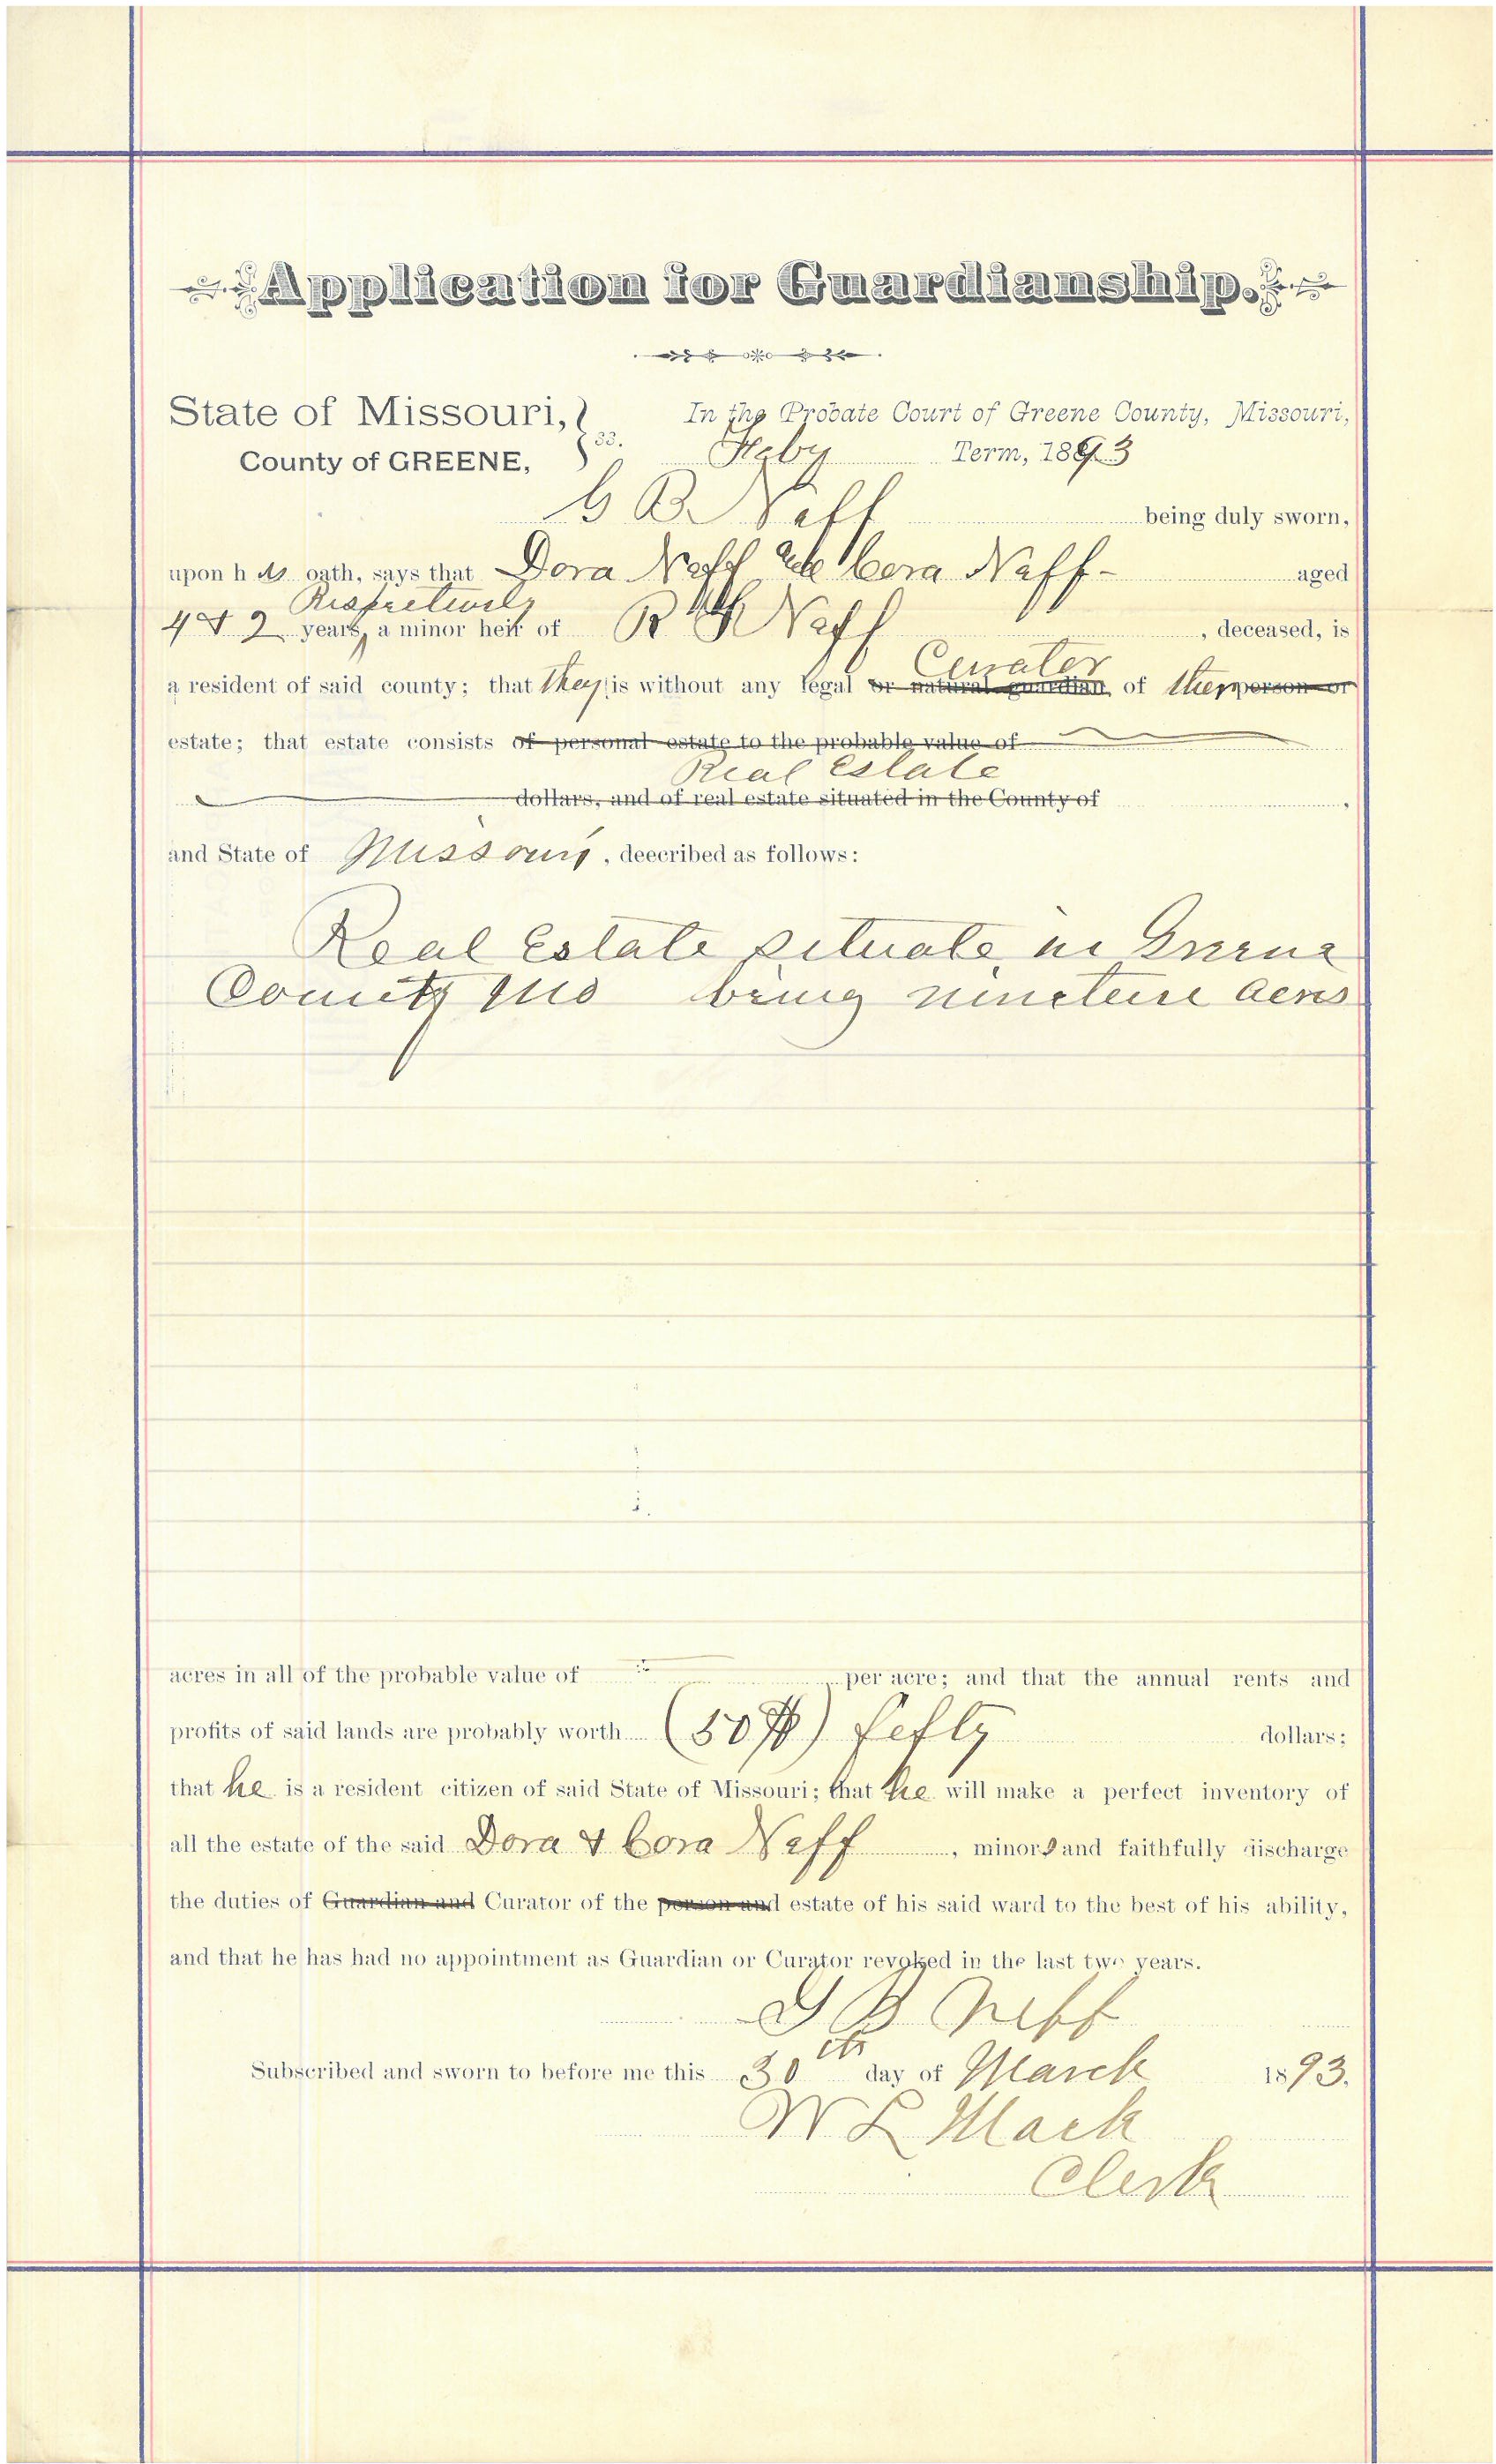 Application for Guardianship.
State of Missouri, } ss. In the Probate Court of Greene County, Missouri,
County of GREENE, Feby Term, 1893
G B Neff being duly sworn,
upon his oath, says that Dora Neff and Cora Neff - aged
Respectively
4 & 2 years, a minor heir of R Neff, deceased, is
Curator
a resident of said county; that they is without any legal or natural guardian of their person or
estate; that estate consists of personal estate to the probable value of
Real Estate
dollars, and of real estate situated in the County of ,
and State of Missouri, deecribed as follows:
Real Estate situate in Greene
County Mo being nineteen acres
acres in all of the probable value of per acre; and that the annual rents and
profits of said lands are probably worth (50$) fifty dollars;
that he is a resident citizen of said State of Missouri; that he will make a perfect inventory of
all the estate of the said Dora & Cora Neff, minors and faithfully discharge
the duties of Guardian and Curator of the person and estate of his said ward to the best of his ability,
and that he has had no appointment as Guardian or Curator revoked in the last two years.
G B Neff
Subscribed and sworn to before me this 30th day of March 1893.
W L Mack
Clerk